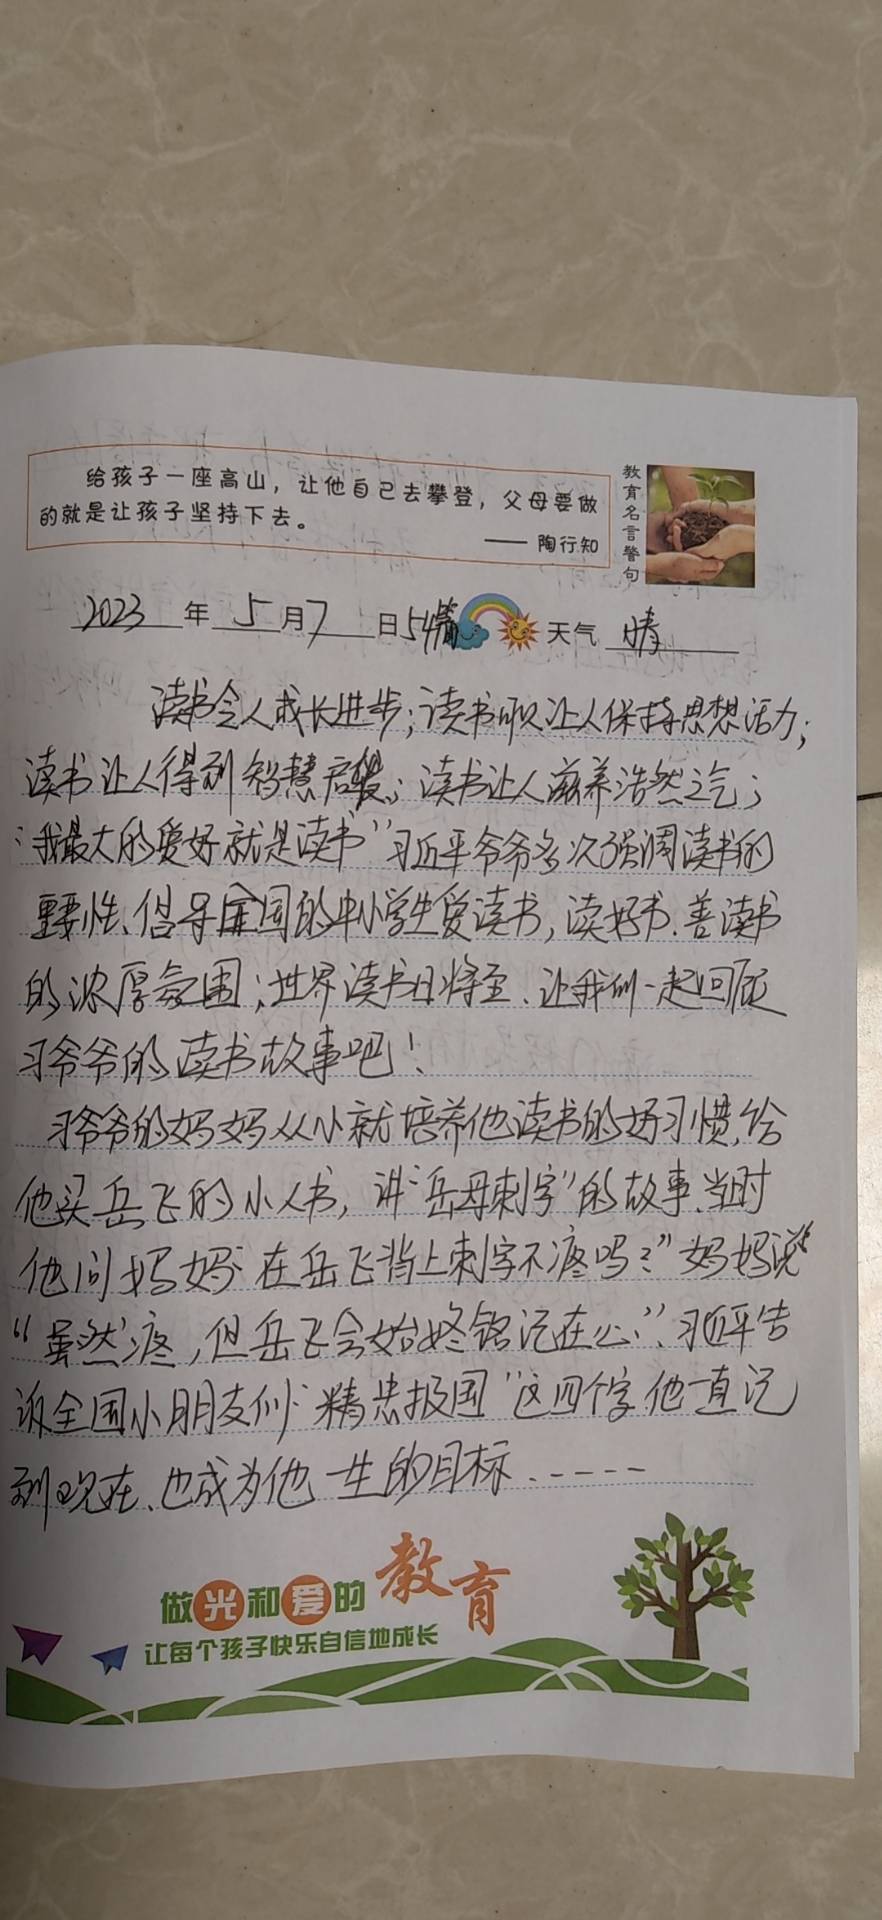 给孩子一座高山，让他自己去攀登，父母要做
的就是让孩子坚持下去。
—— 陶行知
教育名言警句
2023年5月7日 天气 晴
读书令人成长进步；读书可以让人保持思想活力；
读书让人得到智慧启发；读书让人滋养浩然之气；
“我最大的爱好就是读书”习近平爷爷多次强调读书的
重要性、倡导全国的中小学生爱读书，读好书、善读书
的浓厚氛围；世界读书日将至、让我们一起回顾
习爷爷的读书故事吧！
习爷爷的妈妈从小就培养他读书的好习惯，给
他买岳飞的小人书，讲“岳母刺字”的故事、当时
他问妈妈“在岳飞背上刺字不疼吗？”妈妈说
“虽然疼，但岳飞会始终铭记在心”、习近平告
诉全国小朋友们“精忠报国”这四个字他一直记
到现在、也成为他一生的目标、-----
做光和爱的教育
让每个孩子快乐自信地成长